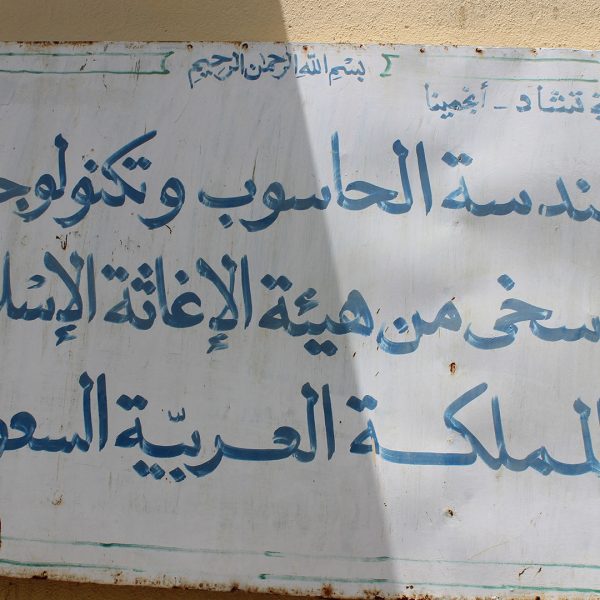 بسم الله الرحمن الرحيم
تشاد - أنجمينا
ندسة الحاسوب وتكنولوج
سخى من هيئة الإغاثة الإسل
لمملكة العربيّة السعو